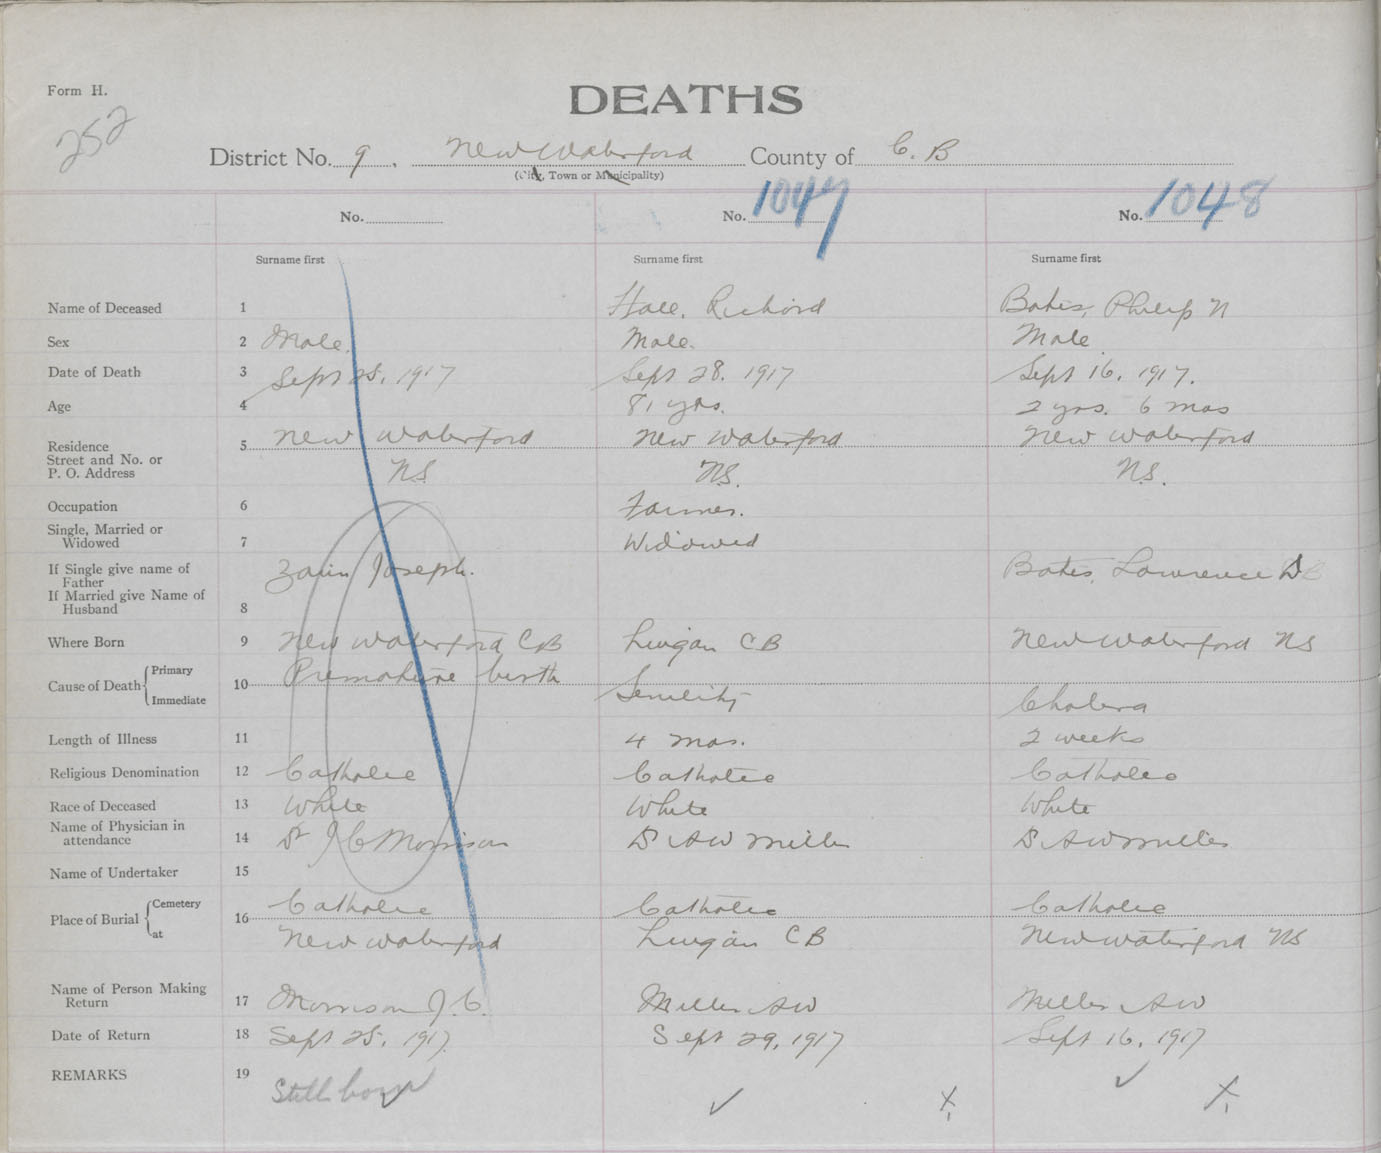 Form H.
DEATHS
252
District No. 9, New Waterford County of C. B
(City, Town or Municipality)
No. No. 1047 No. 1048
Surname first Surname first Surname first
Name of Deceased 1 Hall, Richard Bates, Philip N
Sex 2 Male. Male. Male
Date of Death 3 Sept 25, 1917 Sept 28. 1917 Sept 16. 1917.
Age 4 81 yrs. 2 yrs. 6 mos
Residence
Street and No. or
P. O. Address 5 New Waterford New Waterford New Waterford
N.S. N.S. N.S.
Occupation 6 Farmer.
Single, Married or
Widowed 7 Widowed
If Single give name of
Father
If Married give Name of
Husband 8 Joseph. Bates, Lawrence B
Where Born 9 New Waterford CB Lingan CB New Waterford NS
Cause of Death Primary
Immediate 10 Premature birth Senility Cholera
Length of Illness 11 4 mos. 2 weeks
Religious Denomination 12 Catholic Catholic Catholic
Race of Deceased 13 White White White
Name of Physician in
attendance 14 Dr J C Morrison Dr A W Miller Dr A W Miller
Name of Undertaker 15
Place of Burial Cemetery
at 16 Catholic Catholic Catholic
New Waterford Lingan CB New Waterford NS
Name of Person Making
Return 17 Morrison J. C. Miller A W Miller A W
Date of Return 18 Sept 25, 1917 Sept 29, 1917 Sept 16, 1917
REMARKS 19 Still born